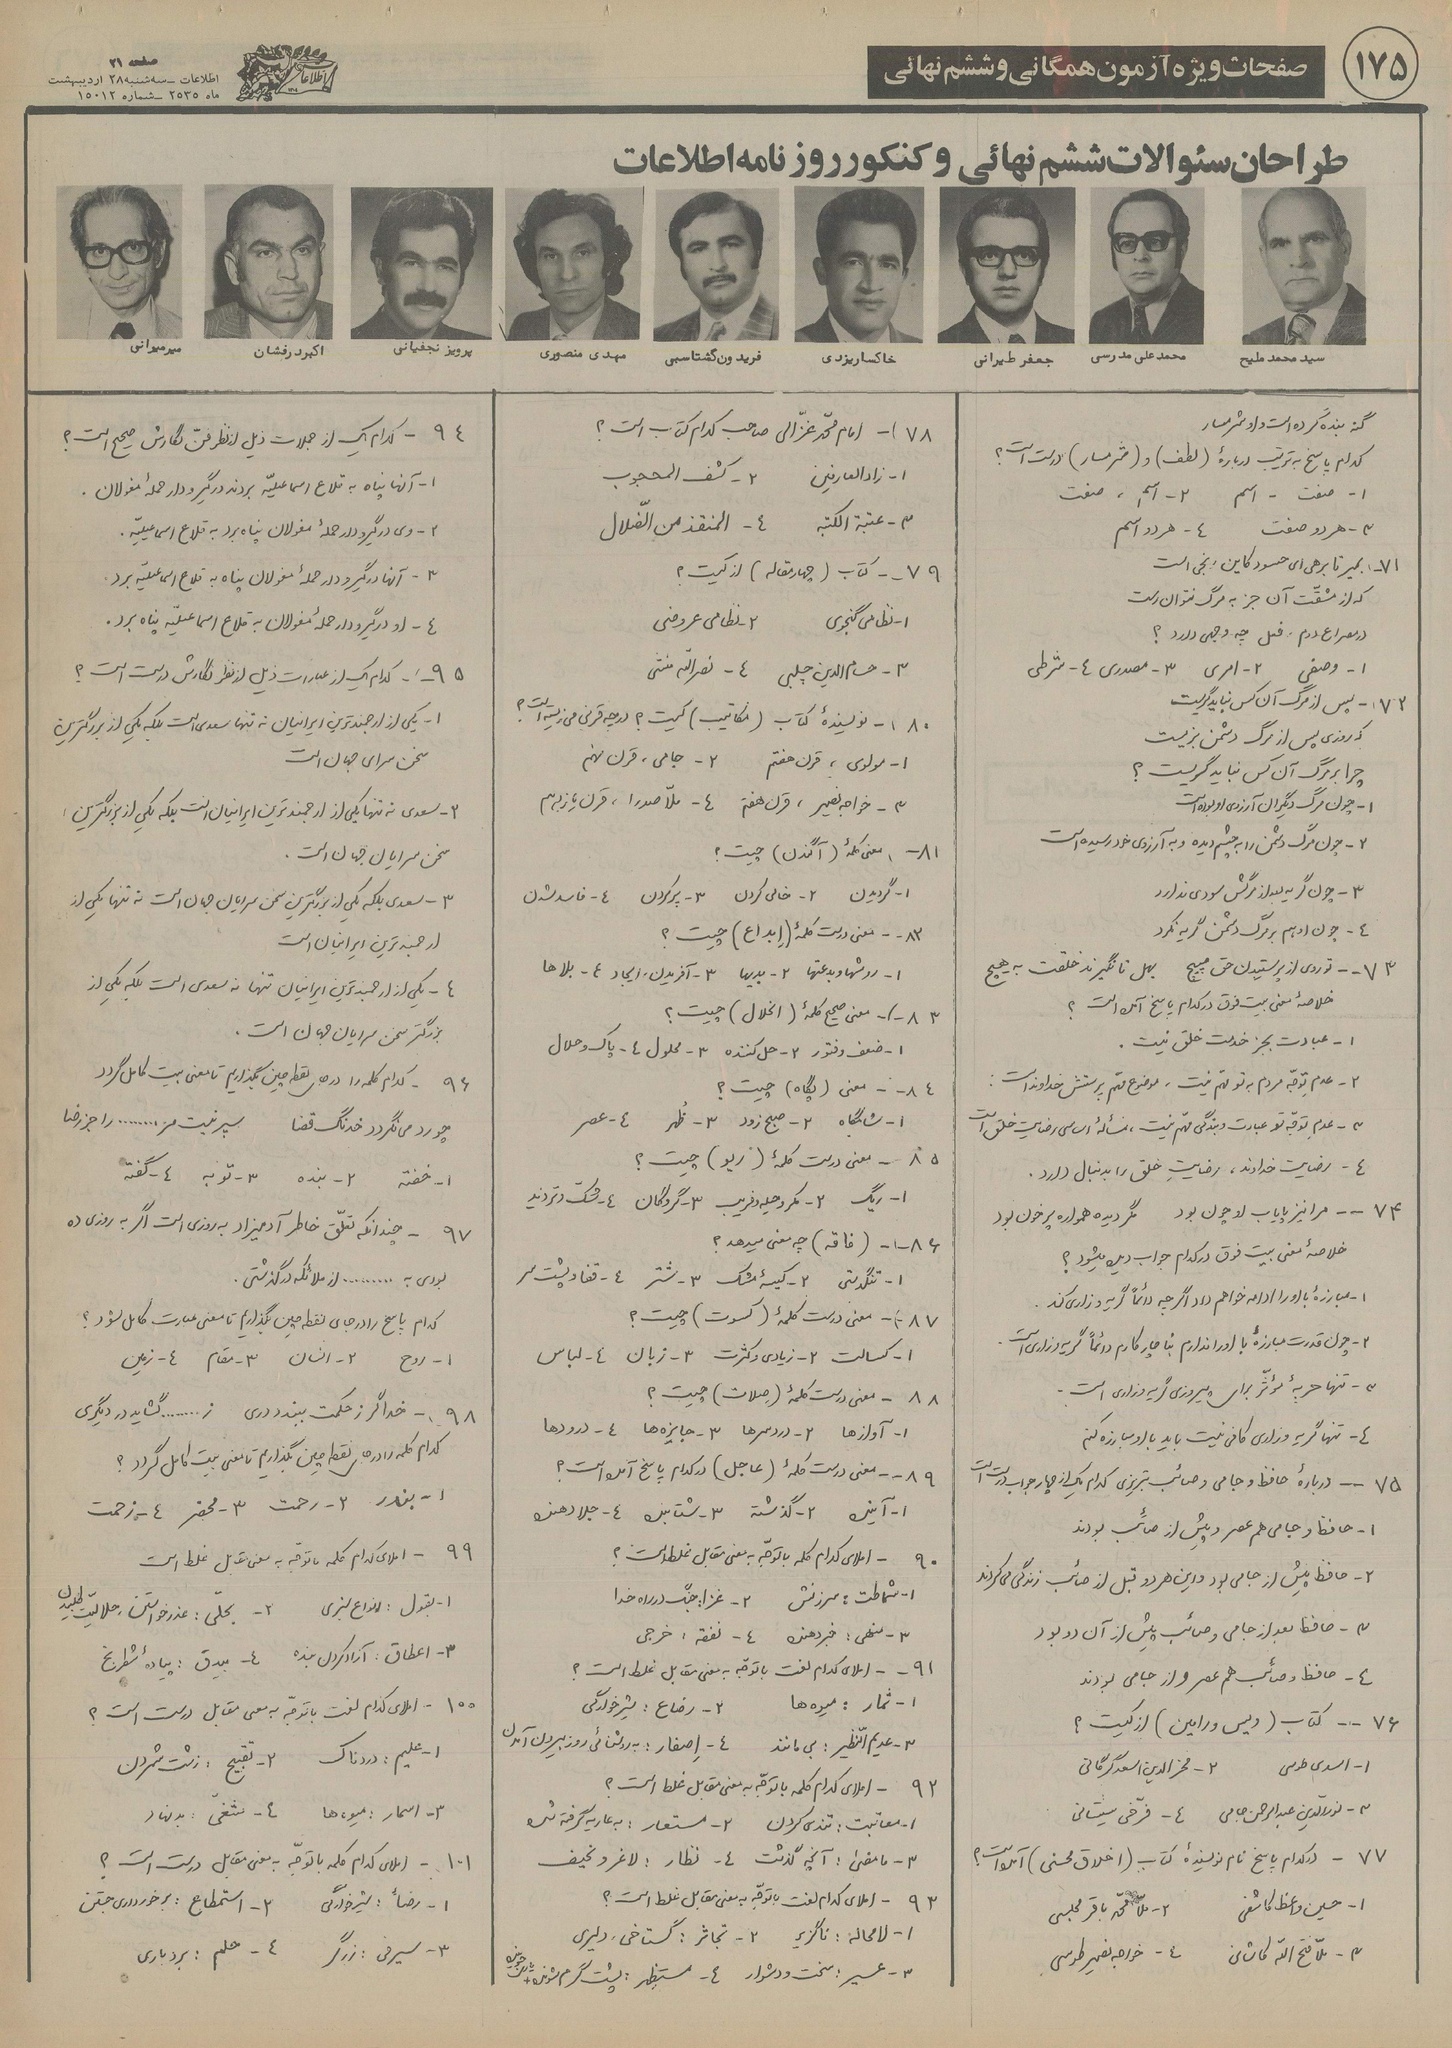 ۱۷۵
صفحات ویژه آزمون همگانی و ششم نهائی
صفحه ۲۱
اطلاعات ـ سه‌شنبه ۲۸ اردیبهشت
ماه ۲۵۳۵ ـ شماره ۱۵۰۱۲
طراحان سئوالات ششم نهائی و کنکور روزنامه اطلاعات
سید محمد ملیح
محمدعلی مدرسی
جعفر طیرانی
خاکسار یزدی
فریدون گشتاسبی
مهدی منصوری
پرویز نجفیانی
اکبر درفشان
میرمیرانی
گنه بنده کرده است و او شرمسار
کدام پاسخ به ترتیب دربارهٔ (لطف) و (شرمسار) درست است؟
۱- صفت - اسم ۲- اسم ، صفت
۳- هر دو صفت ٤- هر دو اسم
۷۱- بمیر تا برهی ای حسود کاین رنجی است
که از مشقّت آن جز به مرگ نتوان رست
در مصراع دوم ، فعل چه وجهی دارد ؟
۱- وصفی ۲- امری ۳- مصدری ٤- شرطی
۷۲- پس از مرگ آن کس نباید گریست
که روزی پس از مرگ دشمن بزیست
چرا بر مرگ آن کس نباید گریست ؟
۱- چون مرگ دیگران آرزوی او بوده است
۲- چون مرگ دشمن را به چشم دیده و به آرزوی خود رسیده است
۳- چون گریه بعد از مرگش سودی ندارد
٤- چون او هم بر مرگ دشمن گریه نکرد
۷۳- تو روی از پرستیدن حق مپیچ بهل تا نگیرند خلقت به هیچ
خلاصهٔ معنی بیت فوق در کدام پاسخ آمده است ؟
۱- عبادت بجز خدمت خلق نیست .
۲- عدم توجّه مردم به تو مهّم نیست ، موضوع مهّم پرستش خداوند است .
۳- عدم توجّه تو عبادت و بندگی مهّم نیست ، مسألهٔ اساسی رضایت خلق است
٤- رضایت خداوند ، رضایت خلق را بدنبال دارد .
۷۴- مرا نیز پایاب او چون بود مگر دیده همواره پر خون بود
خلاصهٔ معنی بیت فوق در کدام جواب دیده میشود ؟
۱- مبارزهٔ با او را ادامه خواهم داد اگر چه دائماً گریه و زاری کند .
۲- چون قدرت مبارزهٔ با او را ندارم بناچار کارم دائماً گریه و زاری است .
۳- تنها حربهٔ مؤثّر برای پیروزی گریه و زاری است .
٤- تنها گریه و زاری کافی نیست باید با او مبارزه کنم
۷۵- دربارهٔ حافظ و جامی و صائب تبریزی کدام یک از چهار جواب درست است
۱- حافظ و جامی هم عصر و پیش از صائب بودند
۲- حافظ پیش از جامی بود و این هر دو قبل از صائب زندگی می کردند
۳- حافظ بعد از جامی و صائب پیش از آن دو بود
٤- حافظ و صائب هم عصر و از جامی بودند
۷۶- کتاب (ویس و رامین) از کیست ؟
۱- اسدی طوسی ۲- فخرالدین اسعد گرگانی
۳- نورالدین عبدالرحمن جامی ٤- فرّخی سیستانی
۷۷- در کدام پاسخ نام نویسندهٔ کتاب (اخلاق محسنی) آمده است؟
۱- حسین واعظ کاشفی ۲- ملّا محمّد باقر مجلسی
۳- ملّا فتح الله کاشانی ٤- خواجه نصیر طوسی
۷۸- امام محمّد غزّالی صاحب کدام کتاب است ؟
۱- زادالعارفین ۲- کشف المحجوب
۳- عتبة الکتبه ٤- المنقذ من الضّلال
۷۹- کتاب (چهار مقاله) از کیست ؟
۱- نظامی گنجوی ۲- نظامی عروضی
۳- حسام الدین چلبی ٤- نصرالله منشی
۸۰- نویسندهٔ کتاب (مکاتیب) کیست ؟ در چه قرنی می زیسته است ؟
۱- مولوی ، قرن هفتم ۲- جامی ، قرن نهم
۳- خواجه نصیر ، قرن هفتم ٤- ملّا صدرا ، قرن یازدهم
۸۱- معنی کلمهٔ (آگندن) چیست ؟
۱- گردیدن ۲- خالی کردن ۳- پر کردن ٤- فاسد شدن
۸۲- معنی درست کلمهٔ (اِبداع) چیست ؟
۱- روشها و بدعتها ۲- بدیها ۳- آفریدن ، ایجاد ٤- بلاها
۸۳- معنی صحیح کلمهٔ (انحلال) چیست ؟
۱- ضعف و فتور ۲- حل کننده ۳- محلول ٤- پاک و حلال
۸٤- معنی (پگاه) چیست ؟
۱- شامگاه ۲- صبح زود ۳- ظُهر ٤- عصر
۸۵- معنی درست کلمهٔ (ریو) چیست ؟
۱- ریگ ۲- مکر و حیله و فریب ۳- گروگان ٤- شک و تردید
۸۶- (فاقه) چه معنی میدهد ؟
۱- تنگدستی ۲- کیسهٔ مشک ۳- شتر ٤- قفا و پشت سر
۸۷- معنی درست کلمهٔ (کسوت) چیست ؟
۱- کسالت ۲- زیادی و کثرت ۳- زبان ٤- لباس
۸۸- معنی درست کلمهٔ (صِلات) چیست ؟
۱- آوازها ۲- دردسرها ۳- جایزه‌ها ٤- درودها
۸۹- معنی درست کلمهٔ (عاجل) در کدام پاسخ آمده است ؟
۱- آینده ۲- گذشته ۳- شتابنده ٤- جلا دهنده
۹۰- املای کدام کلمه با توجّه به معنی مقابل غلط است ؟
۱- شماطت : سرزنش ۲- غزا : جنگ در راه خدا
۳- منهی : خبر دهنده ٤- نفقه : خرجی
۹۱- املای کدام لغت با توجّه به معنی مقابل غلط است ؟
۱- ثمار : میوه ها ۲- رضاع : شیرخوارگی
۳- عدیم النّظیر : بی مانند ٤- اِصفار : به روشنائی روز بیرون آمدن
۹۲- املای کدام کلمه با توجّه به معنی مقابل غلط است ؟
۱- معاتبت : تندی کردن ۲- مستعار : به عاریه گرفته شده
۳- مامضیٰ : آنچه گذشت ٤- نظار : لاغر و نحیف
۹۳- املای کدام لغت با توجّه به معنی مقابل غلط است ؟
۱- لامحاله : ناگزیر ۲- تجاثر : گستاخی ، دلیری
۳- عسیر : سخت و دشوار ٤- مستظهر : پشت گرم شونده
۹٤- کدام یک از جملات ذیل از نظر فنّ نگارش صحیح است ؟
۱- آنها پناه به قلاع اسماعیلیّه بردند در گیر و دار حملهٔ مغولان .
۲- وی در گیر و دار حملهٔ مغولان پناه برد به قلاع اسماعیلیّه .
۳- آنها در گیر و دار حملهٔ مغولان پناه به قلاع اسماعیلیّه برد .
٤- او در گیر و دار حملهٔ مغولان به قلاع اسماعیلیّه پناه برد .
۹۵- کدام یک از عبارات ذیل از نظر نگارش درست است ؟
۱- یکی از ارجمندترین ایرانیان نه تنها سعدی است بلکه یکی از بزرگترین
سخن سرای جهان است
۲- سعدی نه تنها یکی از ارجمندترین ایرانیان است بلکه یکی از بزرگترین
سخن سرایان جهان است .
۳- سعدی بلکه یکی از بزرگترین سخن سرایان جهان است نه تنها یکی از
ارجمندترین ایرانیان است
٤- یکی از ارجمندترین ایرانیان تنها نه سعدی است بلکه یکی از
بزرگتر سخن سرایان جهان است .
۹۶- کدام کلمه را در جای نقطه چین بگذاریم تا معنی بیت کامل گردد
چو رد می نگردد خدنگ قضا سپر نیست مر ........ را جز رضا
۱- خفته ۲- بنده ۳- توبه ٤- گفته
۹۷- چندانکه تعلّق خاطر آدمیزاد به روزی است اگر به روزی ده
بودی به ......... از ملائکه در گذشتی .
کدام پاسخ را در جای نقطه چین بگذاریم تا معنی عبارت کامل شود ؟
۱- روح ۲- انسان ۳- مقام ٤- زمین
۹۸- خدا گر ز حکمت ببندد دری ز ........ گشاید در دیگری
کدام کلمه را در جای نقطه چین بگذاریم تا معنی بیت کامل گردد ؟
۱- بندر ۲- رحمت ۳- محضر ٤- زحمت
۹۹- املای کدام کلمه با توجّه به معنی مقابل غلط است
۱- بقول : انواع سبزی ۲- بحلّی : عذر خواستن ، حلالیّت طلبیدن
۳- اعطاق : آزاد کردن بنده ٤- بیدق : پیادهٔ شطرنج
۱۰۰- املای کدام لغت با توجّه به معنی مقابل درست است ؟
۱- علیم : دردناک ۲- تقبیح : زشت شمردن
۳- اسمار : میوه ها ٤- شغیّ : بدنهاد
۱۰۱- املای کدام کلمه با توجّه به معنی مقابل درست است ؟
۱- رضاء : شیرخوارگی ۲- استمطاع : برخورداری جستن
۳- سیرفی : زرگر ٤- حلم : بردباری